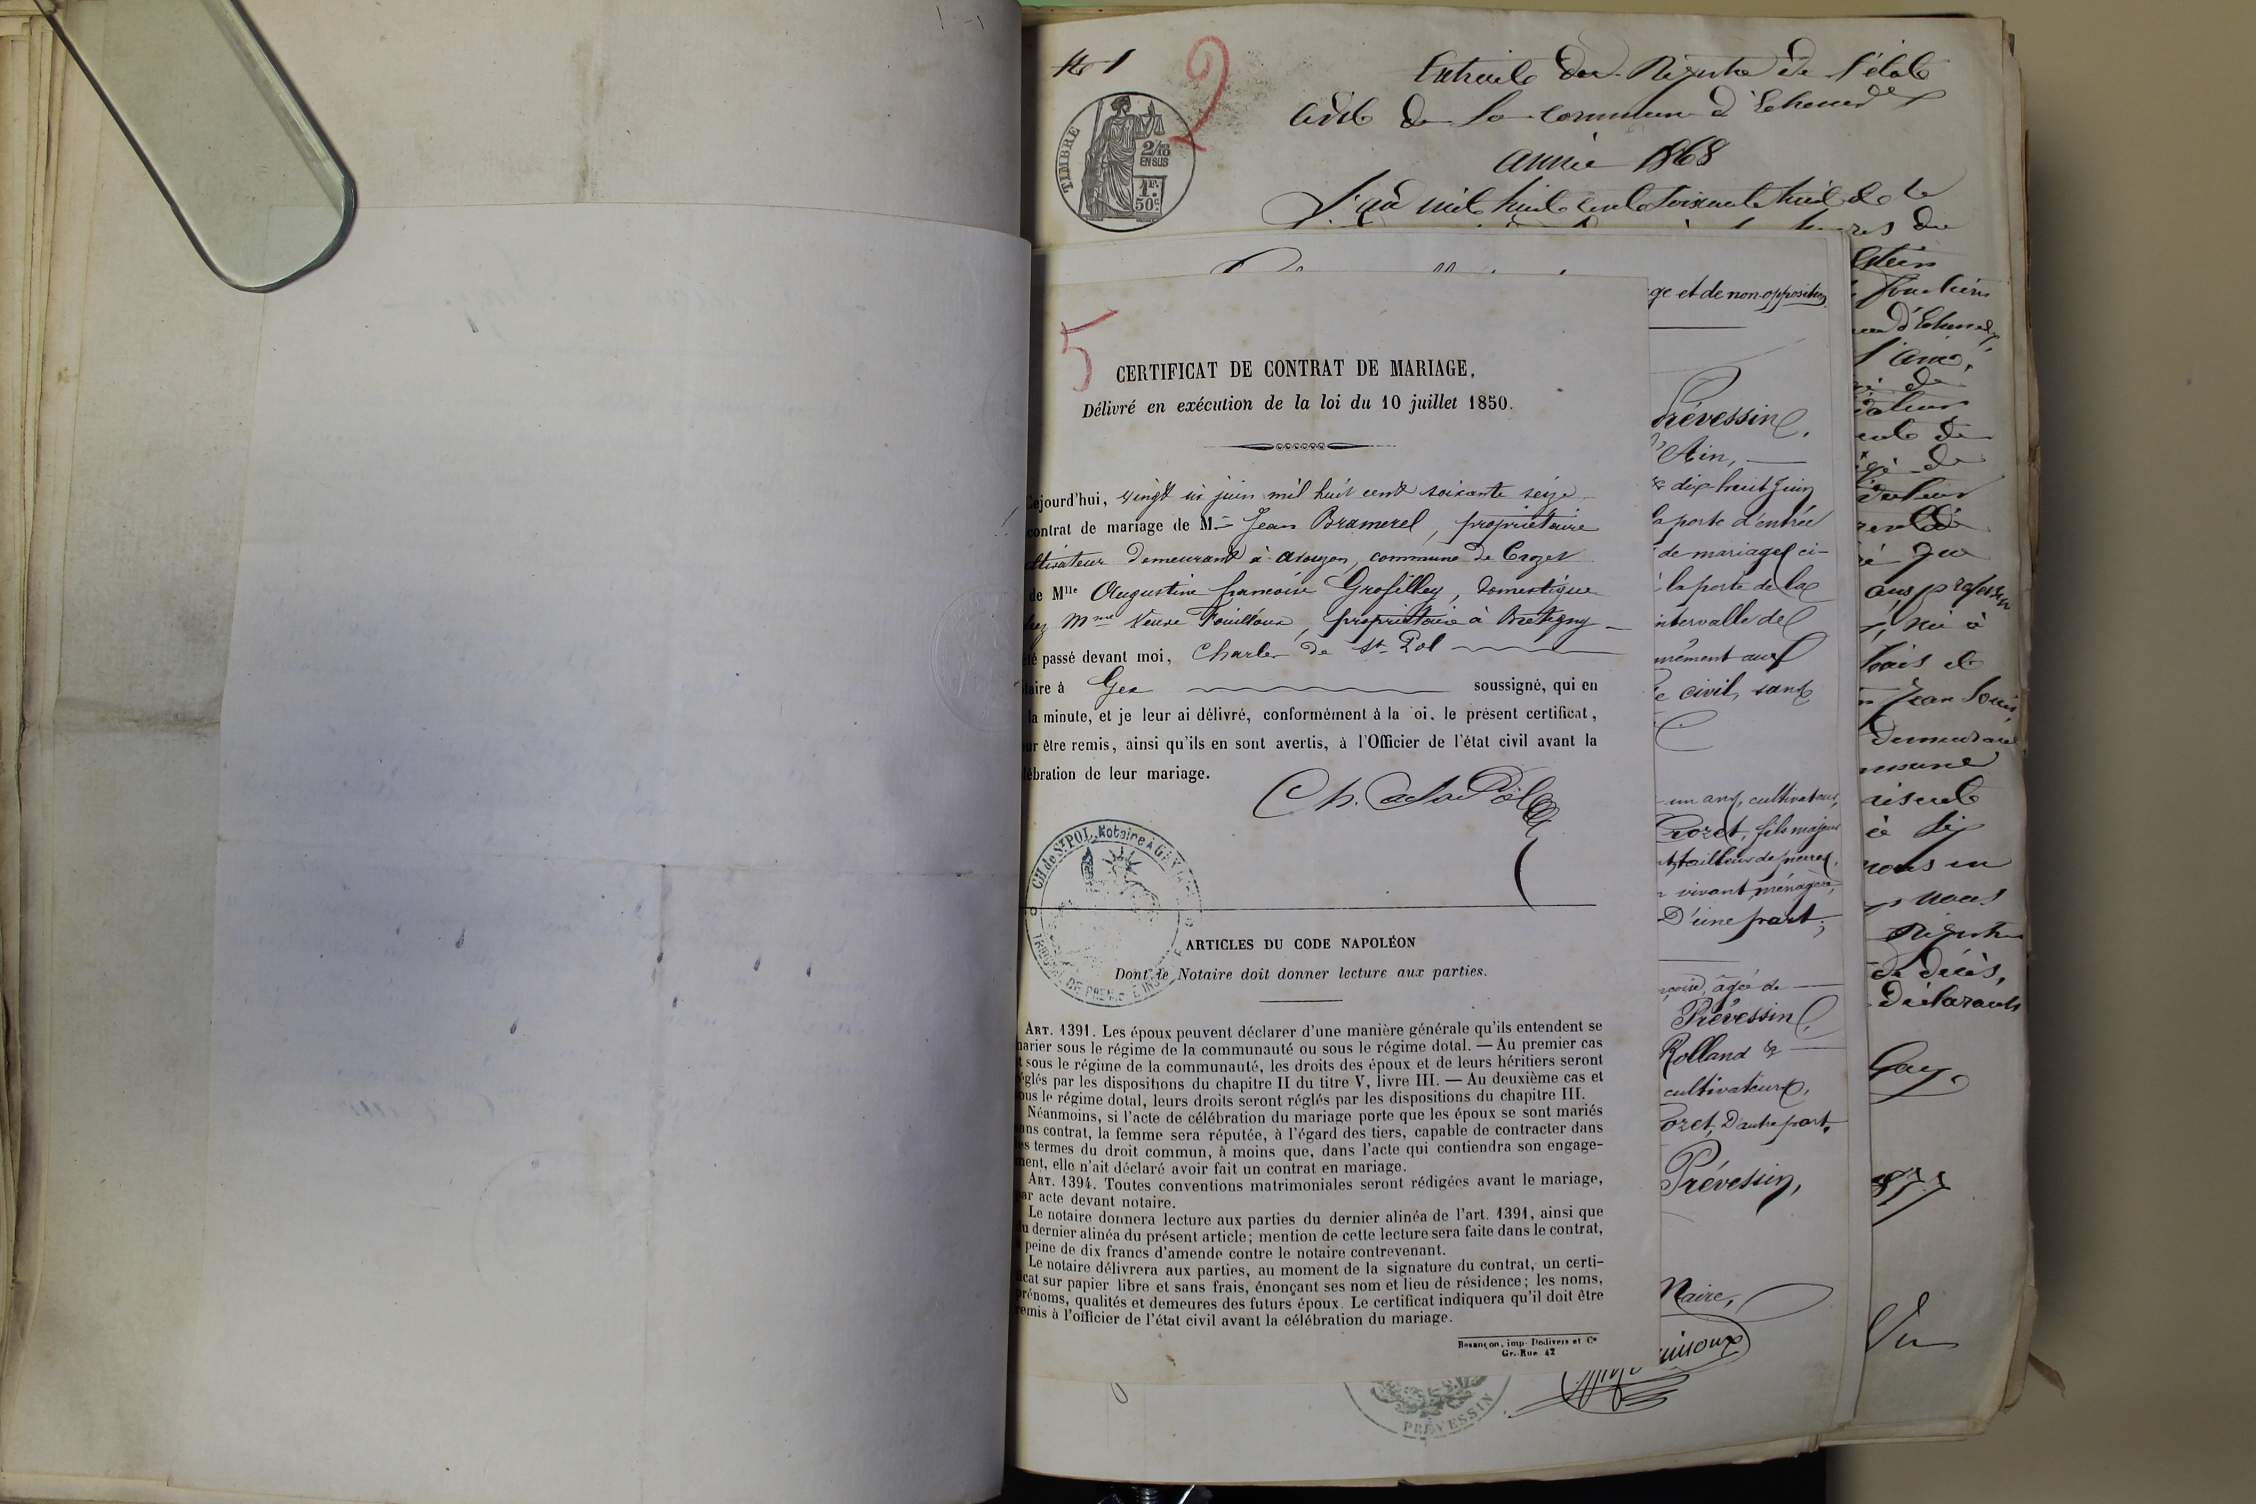 No 1
2
Extrait des Registre de l'état
civil de la commune d'Echenevex
année 1868
L'an mil huit cent soixante huit et le
TIMBRE
2/10
EN SUS
1F.
50c
ge et de non-opposition
5
CERTIFICAT DE CONTRAT DE MARIAGE,
Délivré en exécution de la loi du 10 juillet 1850.
Cejourd'hui, vingt six juin mil huit cent soixante seize
contrat de mariage de M. Jean Bramerel, propriétaire
demeurant à avouzon, commune de Crozet
de Mlle Augustine francoise Grosfilley, domestique
Mme Veuve Fouilloux, propriétaire à Bretigny
été passé devant moi, Charles de St Pol
taire à Gex soussigné, qui en
la minute, et je leur ai délivré, conformément à la oi, le présent certificat,
ur être remis, ainsi qu'ils en sont avertis, à l'Officier de l'état civil avant la
lébration de leur mariage.
Ch. de St Pol
CH. de St POL, Notaire à GEX
ARTICLES DU CODE NAPOLÉON
Dont le Notaire doit donner lecture aux parties.
ART. 1391. Les époux peuvent déclarer d'une manière générale qu'ils entendent se
marier sous le régime de la communauté ou sous le régime dotal. — Au premier cas
t sous le régime de la communauté, les droits des époux et de leurs héritiers seront
églés par les dispositions du chapitre II du titre V, livre III. — Au deuxième cas et
ous le régime dotal, leurs droits seront réglés par les dispositions du chapitre III.
Néanmoins, si l'acte de célébration du mariage porte que les époux se sont mariés
ans contrat, la femme sera réputée, à l'égard des tiers, capable de contracter dans
es termes du droit commun, à moins que, dans l'acte qui contiendra son engage-
ment, elle n'ait déclaré avoir fait un contrat en mariage.
ART. 1394. Toutes conventions matrimoniales seront rédigées avant le mariage,
ar acte devant notaire.
Le notaire donnera lecture aux parties du dernier alinéa de l'art. 1391, ainsi que
du dernier alinéa du présent article; mention de cette lecture sera faite dans le contrat,
peine de dix francs d'amende contre le notaire contrevenant.
Le notaire délivrera aux parties, au moment de la signature du contrat, un certi-
ficat sur papier libre et sans frais, énonçant ses nom et lieu de résidence; les noms,
prénoms, qualités et demeures des futurs époux. Le certificat indiquera qu'il doit être
remis à l'officier de l'état civil avant la célébration du mariage.
Besançon, imp. Dodivers et Ce
Gr.-Rue 42
Prévessin,
l'Ain,
dix huit Juin
la porte d'entrée
de mariage ci-
la porte de la
ntervalle de
mément aux
civil, sans
un ans, cultivateur,
Crozet, fils majeur
tailleur de pierres,
vivant ménagère,
D'une part,
âgée de
Prévessin,
Rolland &
cultivateurs,
ozet, D'autre part.
Prévessin,
Maire,
PRÉVESSIN
res du
d'Echenevex,
l'ainé,
de
de
que
sans profession
né à
et
Jean Louis,
demeurant
nous en
nous
Registre
de décès,
Déclarants
Gay,
Vu